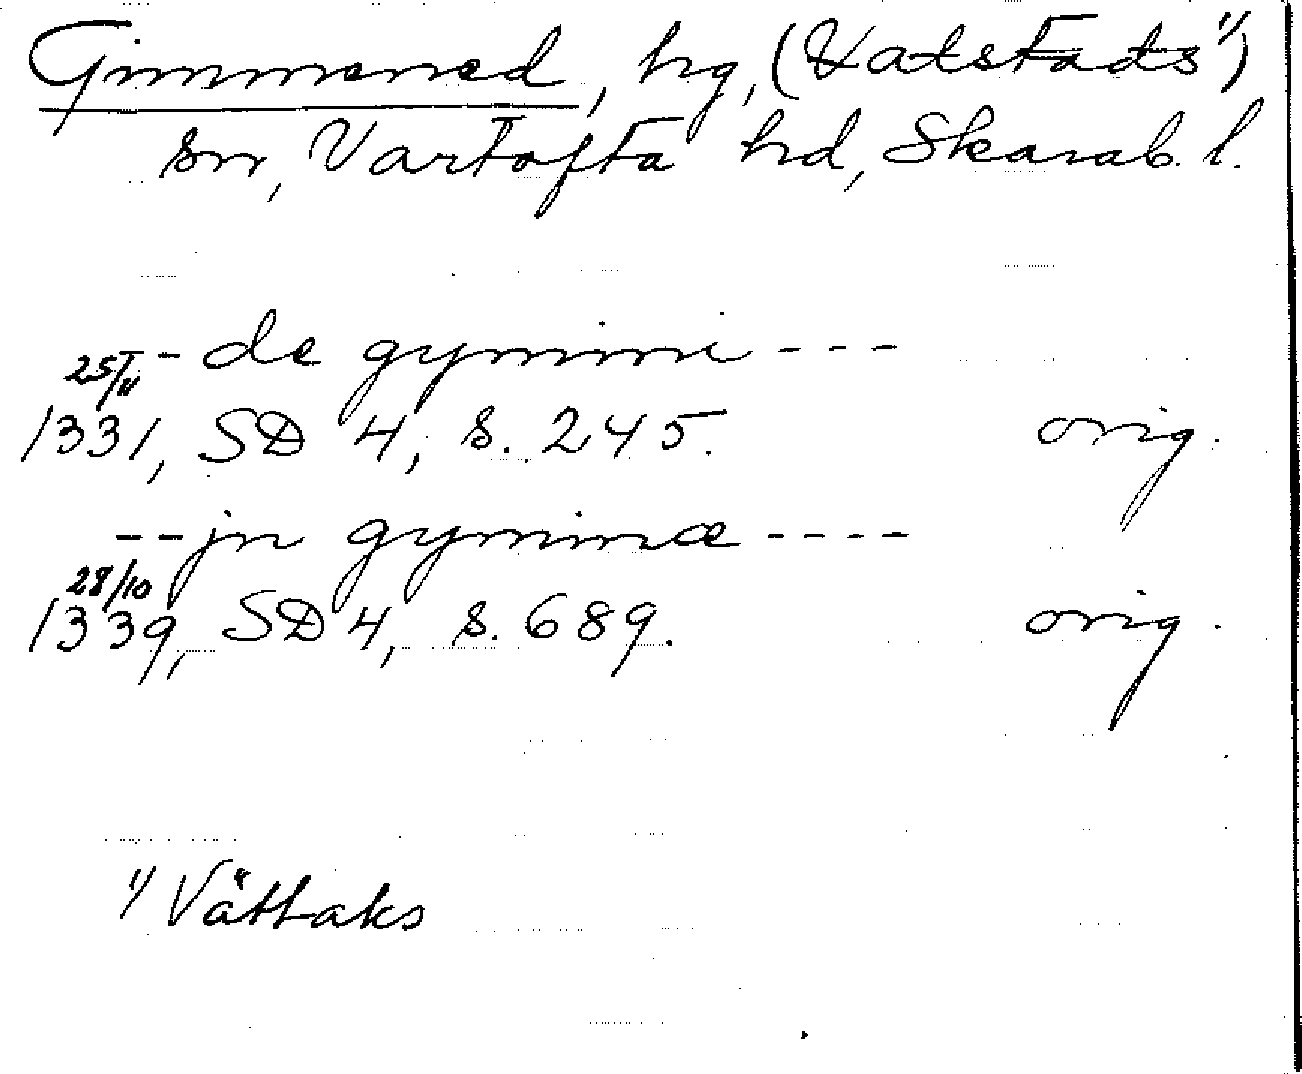 Gimmened, hg, (Vatstads 1/)
sn, Vartofta hd, Skarab. l.
-- de gymmi ---
25/11
1331, SD 4, s. 245. orig.
-- jn gymmæ ----
28/10
1339, SD 4, s. 689. orig.
1/ Vättaks